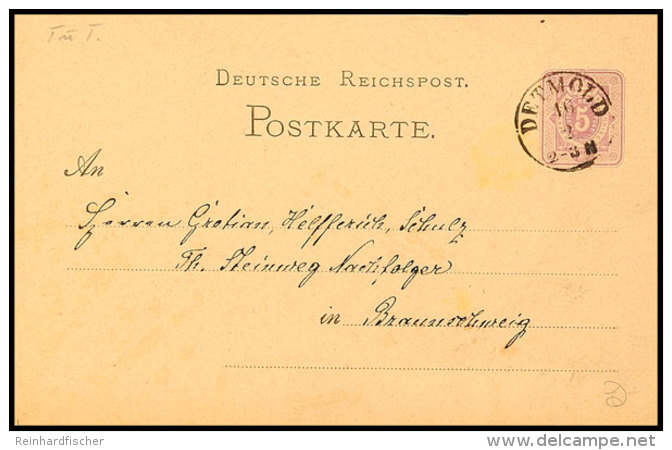 T u T.
DEUTSCHE REICHSPOST.
POSTKARTE.
DETMOLD
16
2-3 N
5
An
Herren Grotian, Helfferich, Schulz
Th. Steinweg Nachfolger
in Braunschweig
Reinhardfischer
www.delcampe.net